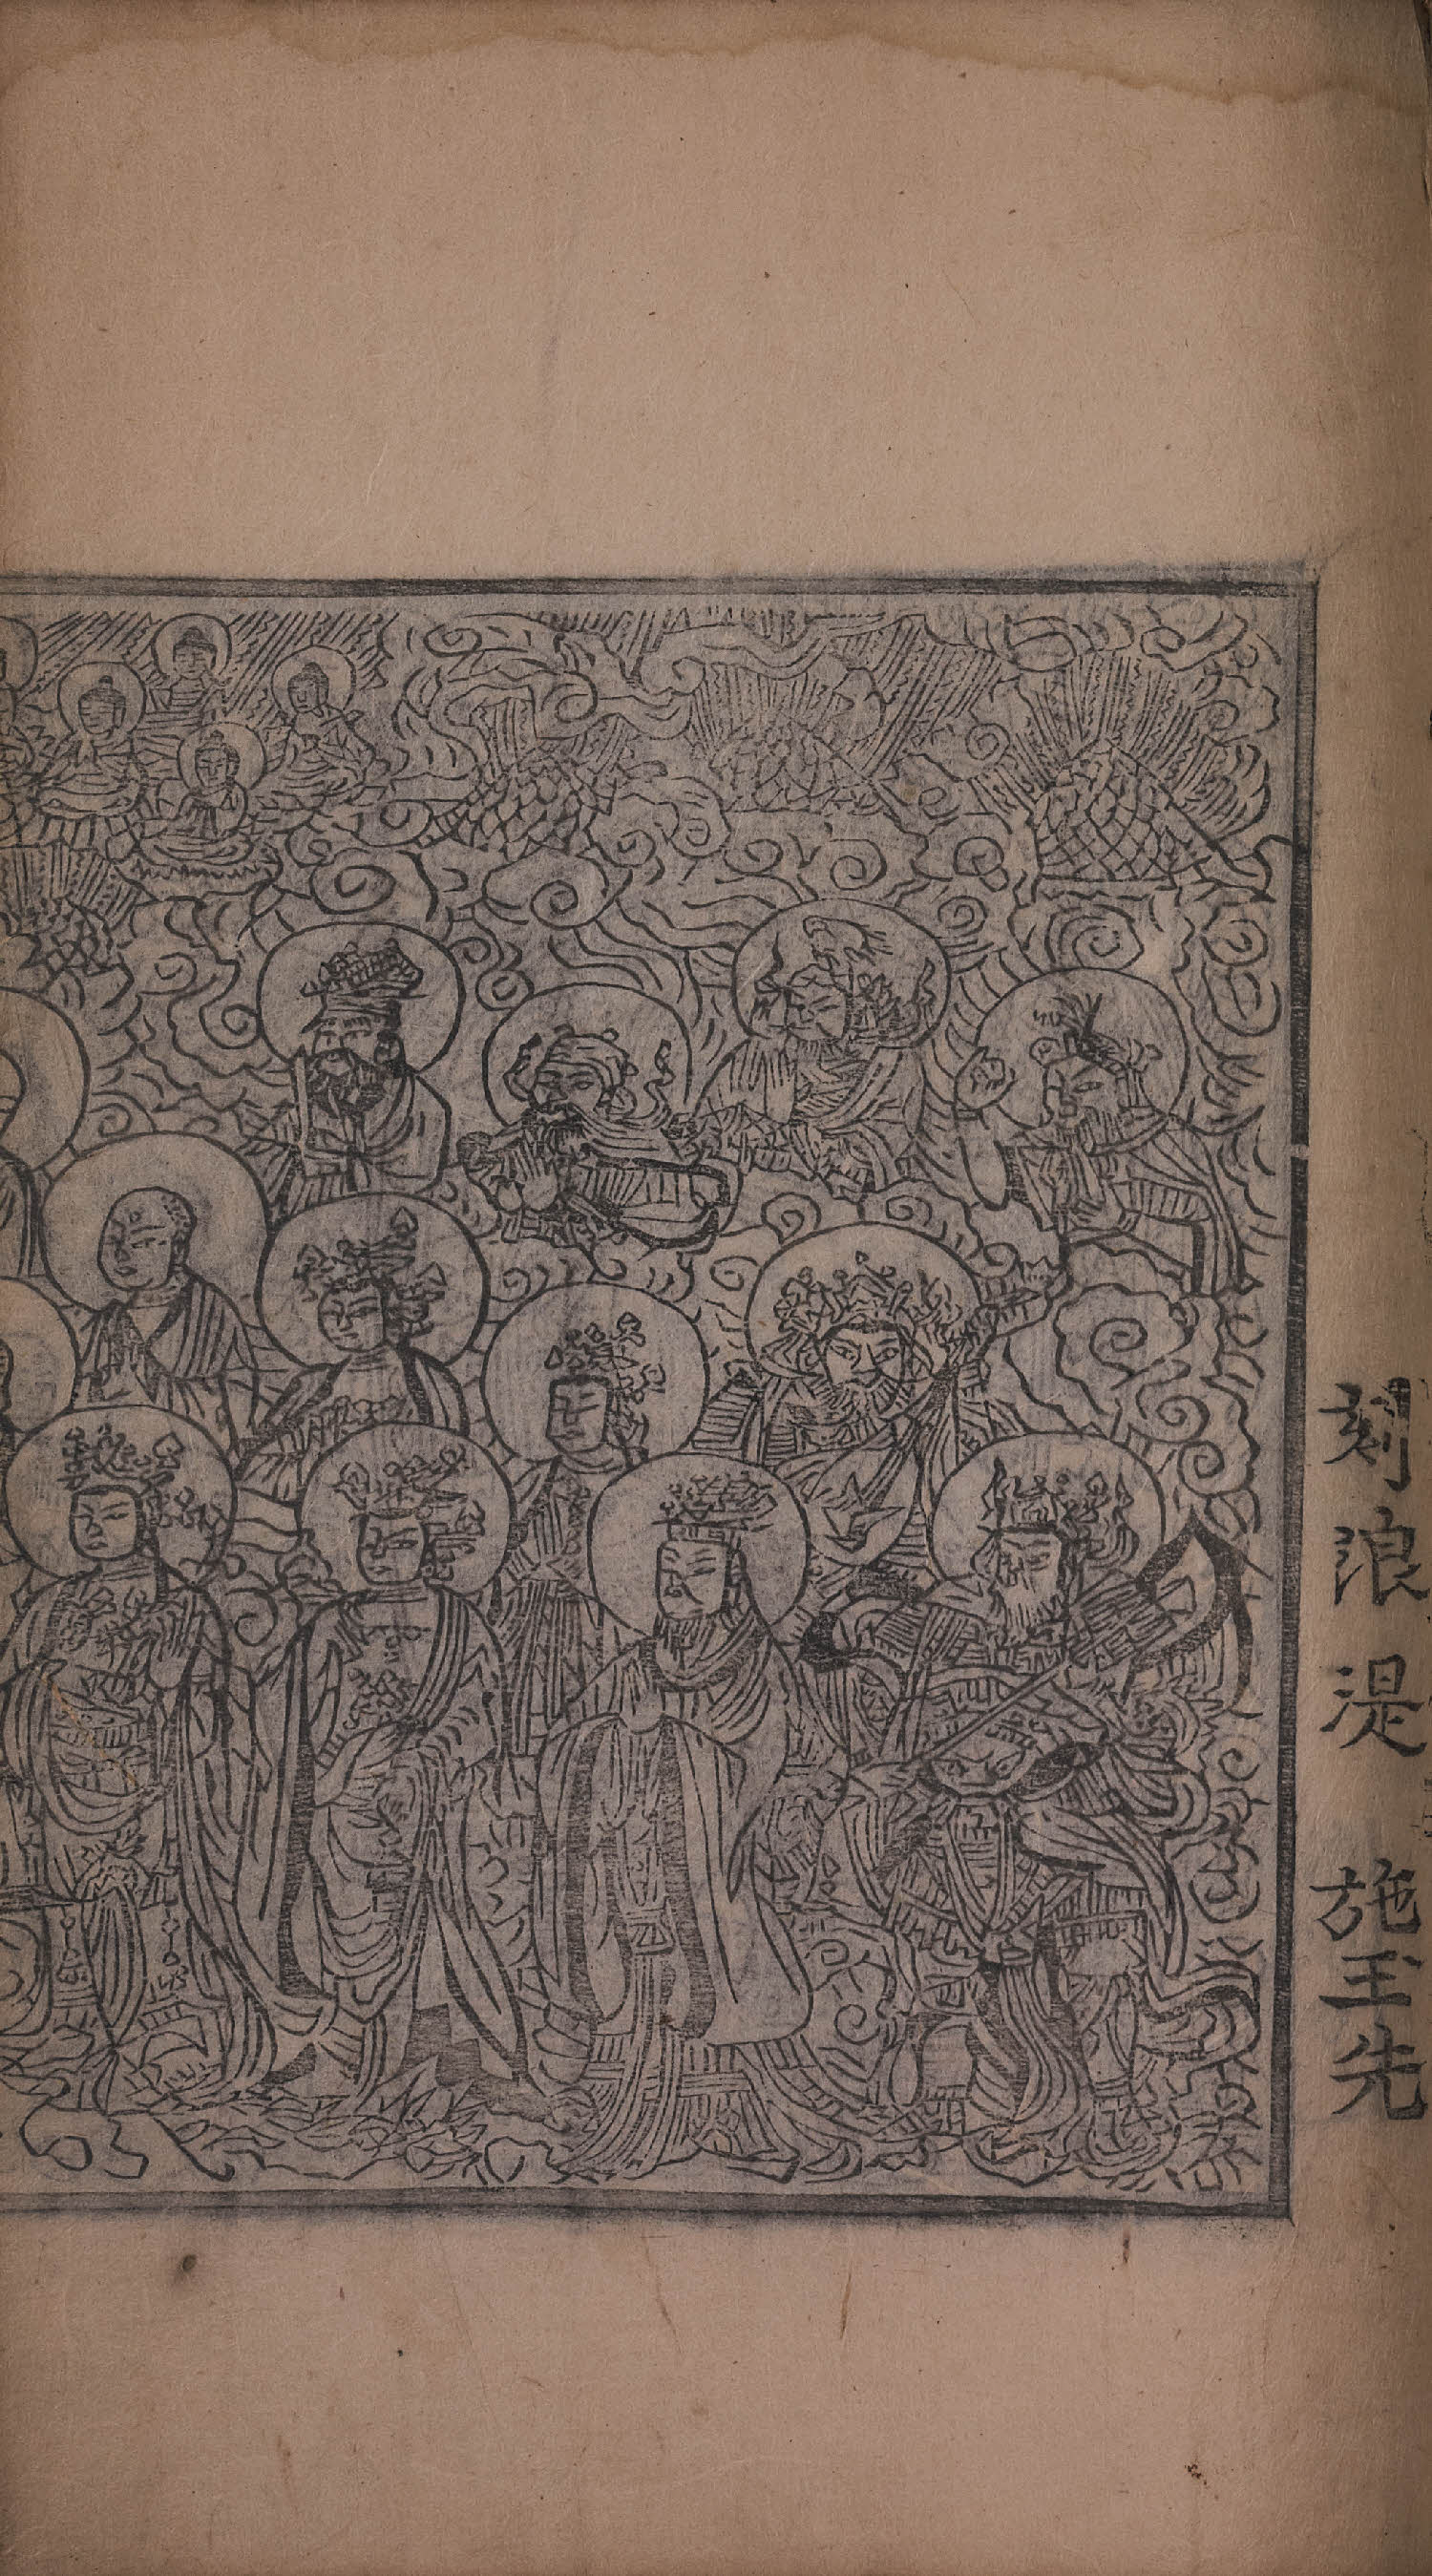 刻浪湜　施主先